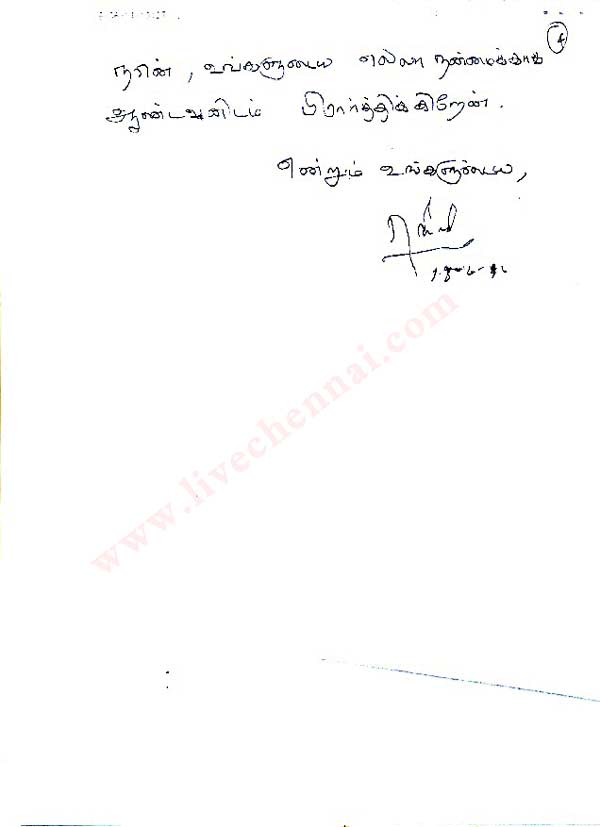 4
நான், உங்களுடைய எல்லா நன்மைக்காக
ஆண்டவனிடம் பிரார்த்திக்கிறேன்.
என்றும் உங்களுடைய,
www.livechennai.com